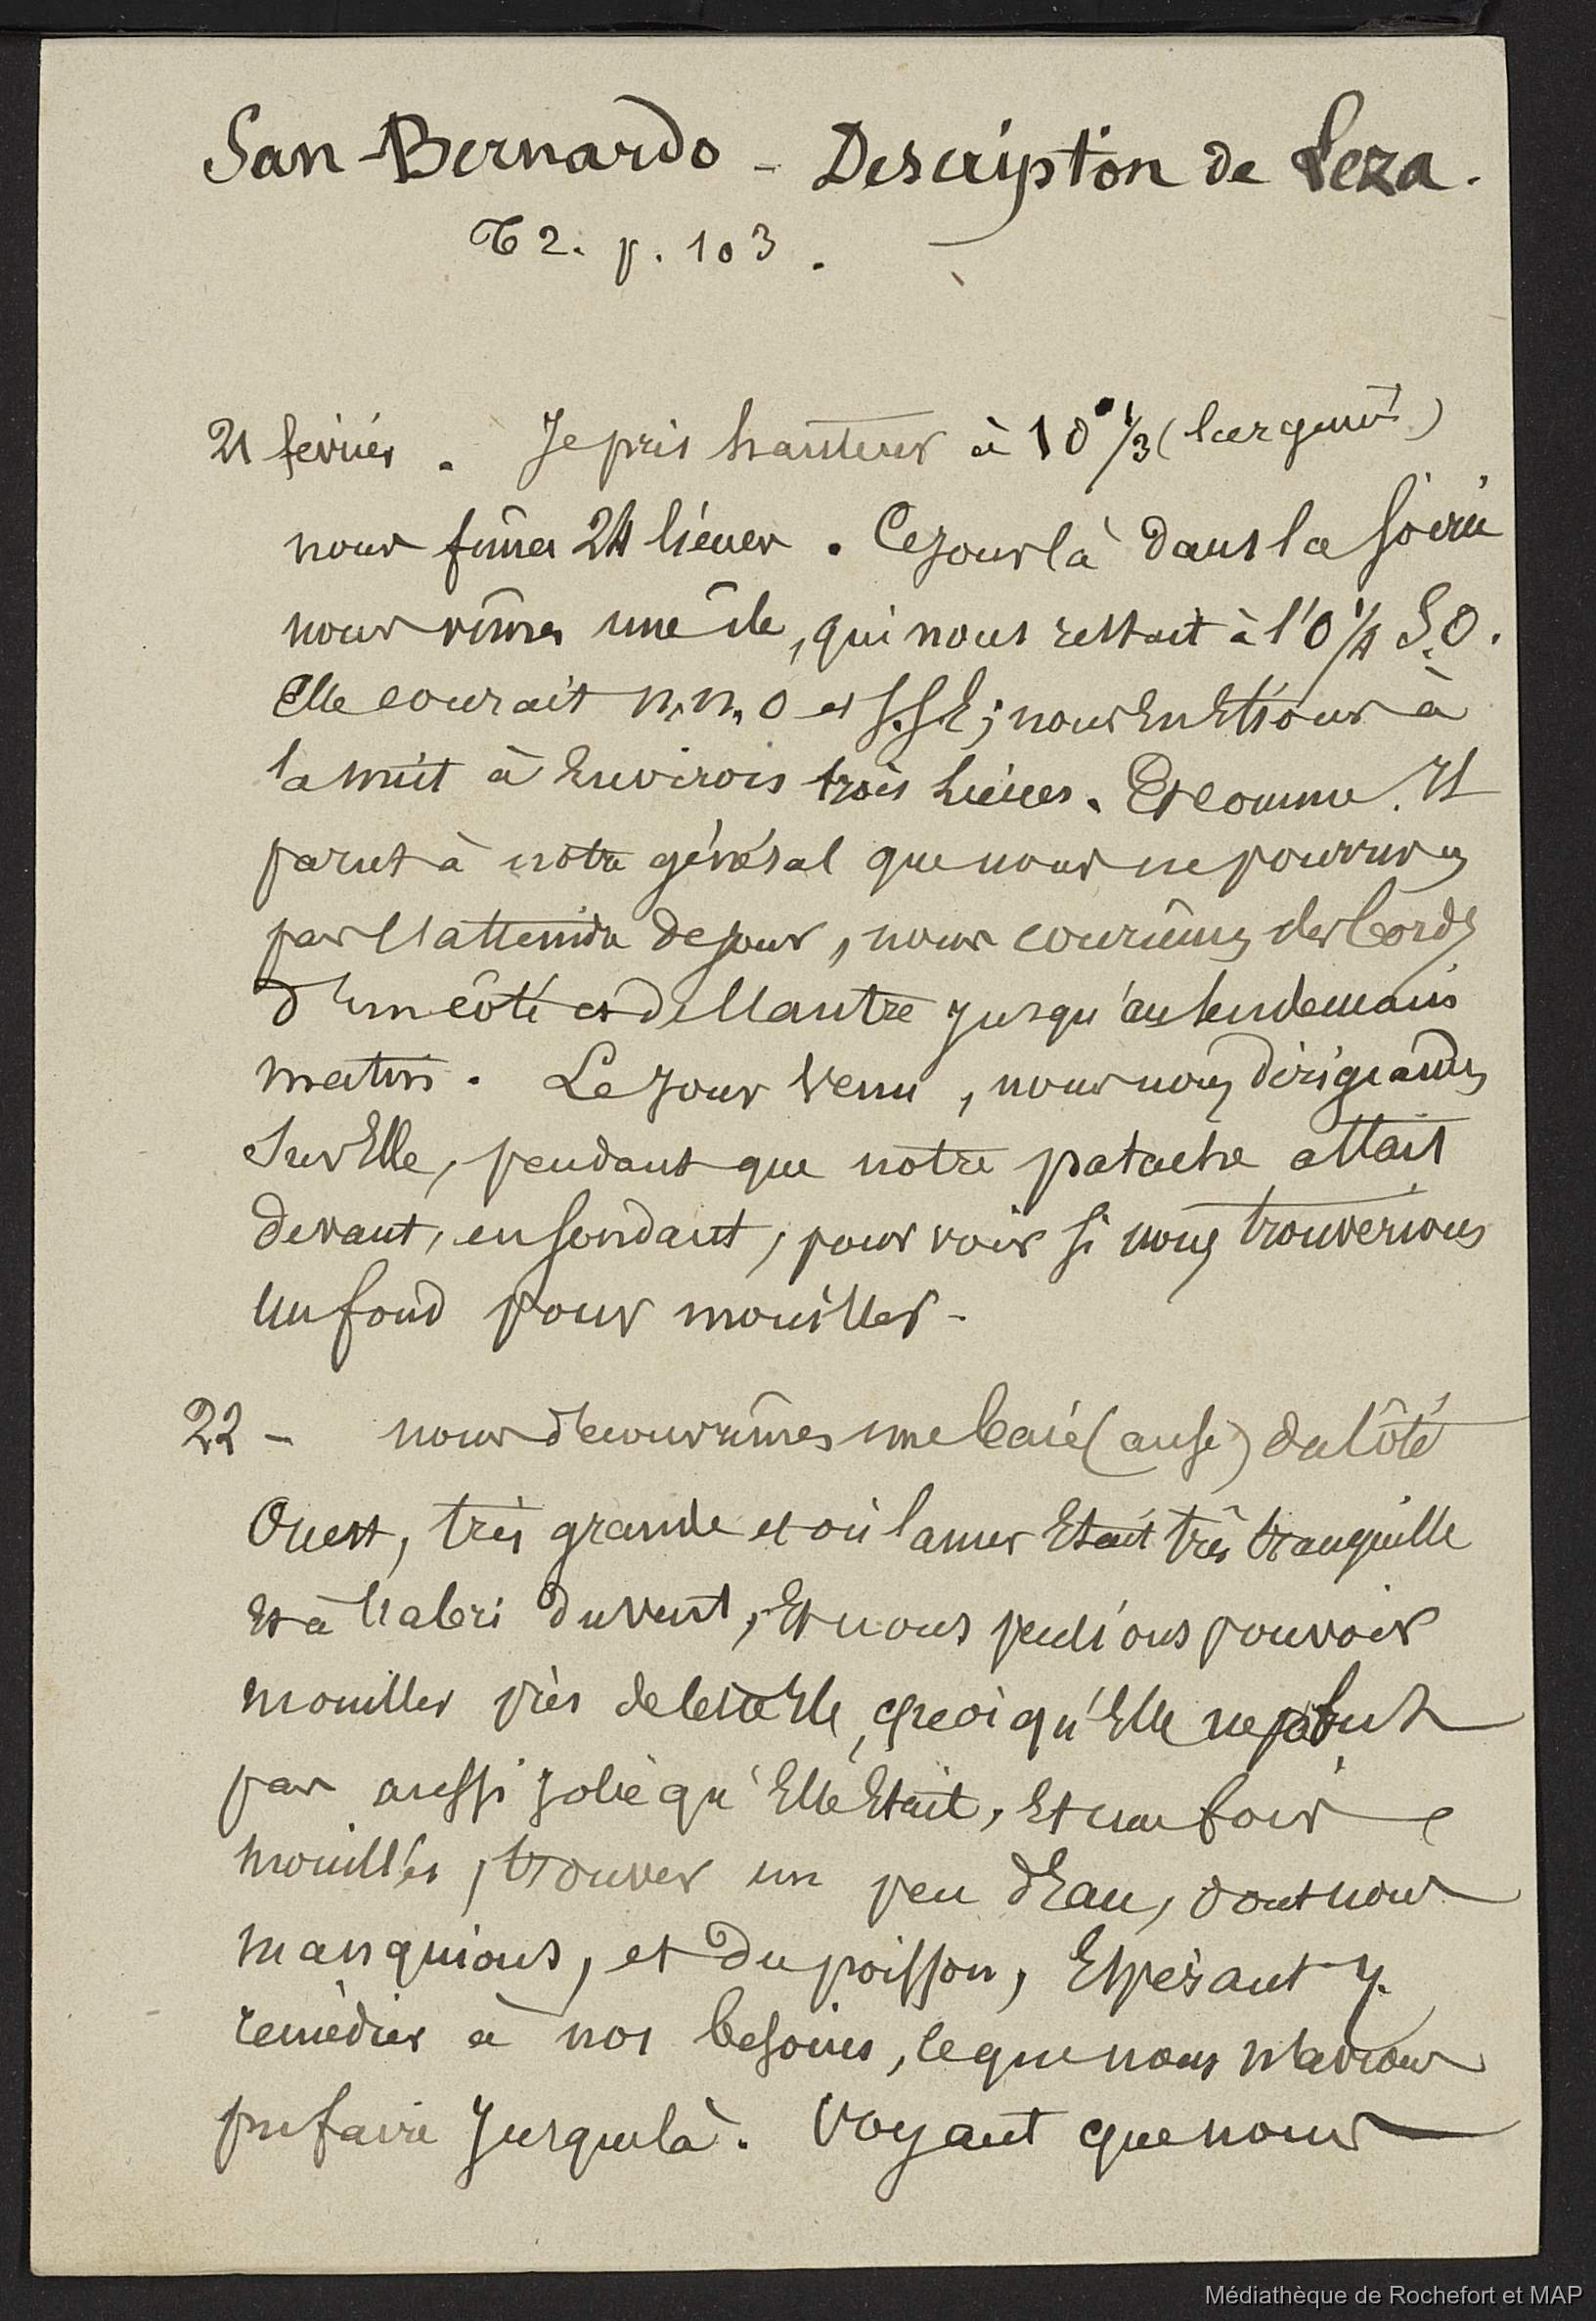 San Bernardo - Description de Leza.
T 2. p. 103.
21 février. Je pris hauteur à 10° 1/3
nous fîmes 24 lieues. Ce jour là dans la soirée
nous vîmes une île, qui nous restait à l'O 1/4 S.O.
Elle courait N.N.O et S.S.E; nous en étions à
la nuit à environ trois lieues. Et comme il
parut à notre général que nous ne pourrions
pas l'atteindre de jour, nous courûmes des bords
d'un côté et de l'autre jusqu'au lendemain
matin. Le jour venu, nous nous dirigeâmes
sur Elle, pendant que notre patache allait
devant, en sondant, pour voir si nous trouverions
un fond pour mouiller-
22 - nous découvrîmes une baie (anse) du côté
Ouest, très grande et où la mer était très tranquille
et à l'abri du vent, Et nous pensions pouvoir
mouiller près de cette Ile, quoiqu'Elle ne parut
pas aussi jolie qu'Elle était, Et une fois
mouillés, trouver un peu d'Eau, dont nous
manquions, et du poisson, Espérant y
remédier à nos besoins, ce que nous n'avions
pu faire jusque là. Voyant que nous
Médiathèque de Rochefort et MAP